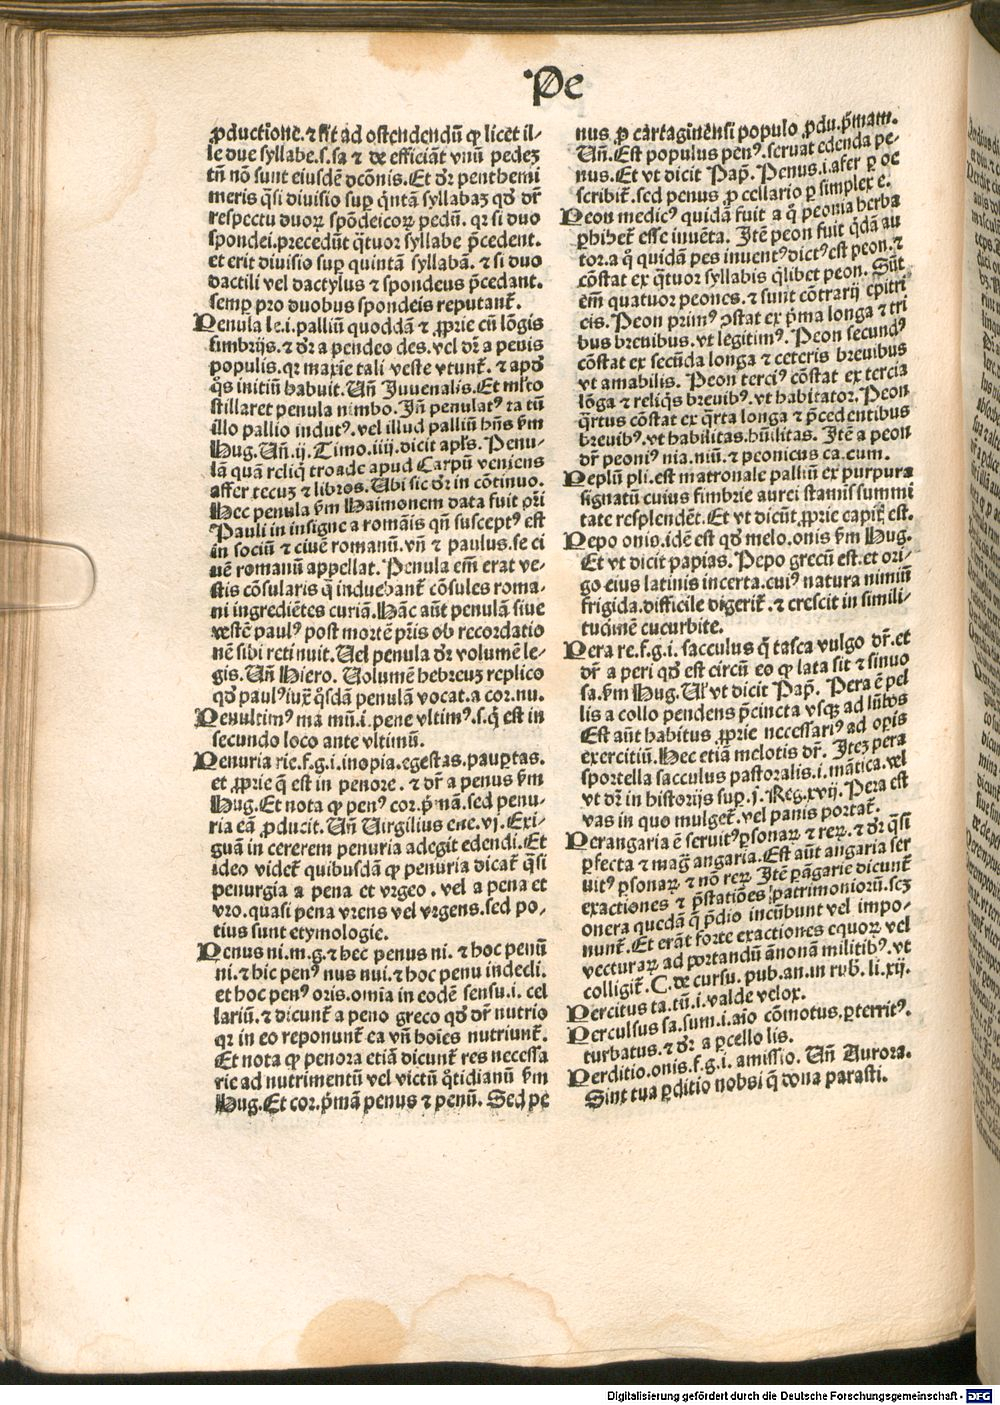 Pe
ꝓductione.⁊ fit ad ostendendū ꝙ licet il⸗
le due syllabe.s.sa ⁊ de efficiāt vnū pedeꝫ
tn̄ nō sunt eiusdē dcōnis.Et dr̄ penthemi
meris q̄si diuisio suꝑ q̄ntā syllabaꝫ qd̓ dr̄
respectu duoꝝ spōdeicoꝝ pedū. qꝛ si duo
spondei.precedūt q̄tuor syllabe p̄cedent.
et erit diuisio suꝑ quintā syllabā. ⁊ si duo
dactili vel dactylus ⁊ spondeus p̄cedant.
semꝑ pro duobus spondeis reputant̄.
Penula le.i.palliū quoddā ⁊ ꝓprie cū lōgis
fimbrijs.⁊ dr̄ a pendeo des.vel dr̄ a penis
populis.qꝛ maxie tali veste vtunt̄. ⁊ apd̓
q̄s initiū habuit.Un̄ Iuuenalis.Et ml̓to
stillaret penula nimbo. In̄ penulatꝰ ta tū
illo pallio indutꝰ.vel illud palliū hn̄s ẜm
Hug.Un̄.ij.Timo.iiij.dicit apl̓s.Penu⸗
lā quā reliq̄ troade apud Carpū veniens
affer tecuꝫ ⁊ libros.Ubi sic dr̄ in cōtinuo.
Hec penula ẜm Haimonem data fuit pr̄i
Pauli in insigne a romāis qn̄ susceptꝰ est
in sociū ⁊ ciuē romanū.vn̄ ⁊ paulus.se ci
uē romanū appellat.Penula em̄ erat ve⸗
stis cōsularis q̄ induebant̄ cōsules roma⸗
ni ingrediētes curiā.Hāc aūt penulā siue
vestē paulꝰ post mortē pr̄is ob recordatio
nē sibi retinuit.Uel penula dr̄ volumē le⸗
gis.Un̄ Hiero. Uolumē hebreuꝫ replico
qd̓ paulꝰ iux̄ q̄sdā penulā vocat.a cor.nu.
Penultimꝰ ma mū.i.pene vltimꝰ.s.q̄ est in
secundo loco ante vltimū.
Penuria rie.f.g.i.inopia.egestas.pauꝑtas.
et ꝓprie q̄ est in penore. ⁊ dr̄ a penus ẜm
Hug.Et nota ꝙ penꝰ cor.p̄mā.sed penu⸗
ria eā ꝓducit.Un̄ Uirgilius ene.vj.Exi⸗
guā in cererem penuria adegit edendi.Et
ideo videt̄ quibusdā ꝙ penuria dicat̄ q̄si
penurgia a pena et vrgeo. vel a pena et
vro.quasi pena vrens vel vrgens.sed po⸗
tius sunt etymologie.
Penus ni.m.g.⁊ hec penus ni. ⁊ hoc penū
ni.⁊ hic penꝰ nus nui.⁊ hoc penu indecli.
et hoc penꝰ oris.omīa in eodē sensu.i. cel
lariū.⁊ dicunt̄ a peno greco qd̓ dr̄ nutrio
qꝛ in eo reponunt̄ ea vn̄ hoīes nutriunt̄.
Et nota ꝙ penora etiā dicunt̄ res necessa
rie ad nutrimentū vel victū q̄tidianū ẜm
Hug.Et cor.p̄mā penus ⁊ penū. Sed pe
nus ꝓ cartaginēnsi populo ꝓdu.p̄mam.
Un̄.Est populus penꝰ.seruat edenda pe⸗
nus.Et vt dicit Pap̄. Penus.i.afer ꝑ oe
scribit̄.sed penus ꝓ cellario ꝑ simplex e.
Peon medicꝰ quidā fuit a q̄ peonia herba
ꝑhibet̄ esse inuēta. Itē peon fuit q̄dā au
tor.a q̄ quidā pes inuentꝰ dictꝰ est peon.⁊
cōstat ex q̄tuor syllabis q̄libet peon. Sūt
em̄ quatuor peones.⁊ sunt cōtrarij epitri
cis.Peon primꝰ ꝯstat ex p̄ma longa ⁊ tri
bus breuibus.vt legitimꝰ. Peon secundꝰ
cōstat ex secūda longa ⁊ ceteris breuibus
vt amabilis. Peon terciꝰ cōstat ex tercia
lōga ⁊ reliq̄s breuibꝰ.vt habitator.Peon
q̄rtus cōstat ex q̄rta longa ⁊ p̄cedentibus
breuibꝰ.vt habilitas.hūilitas. Itē a peon
dr̄ peoniꝰ nia.niū.⁊ peonicus ca.cum.
Peplū pli.est matronale palliū ex purpura
signatū cuius fimbrie aurei staminis summi
tate resplendēt.Et vt dicūt ꝓprie capitis est.
Pepo onis.idē est qd̓ melo.onis ẜm Hug.
Et vt dicit papias. Pepo grecū est.et ori⸗
go eius latinis incerta.cuiꝰ natura nimiū
frigida.difficile digerit̄.⁊ crescit in simili⸗
tudinē cucurbite.
Pera re.f.g.i. sacculus q̄ tasca vulgo dr̄.et
dr̄ a peri qd̓ est circū eo ꝙ lata sit ⁊ sinuo
sa.ẜm Hug.Ul̓ vt dicit Pap̄. Pera ē pel
lis a collo pendens p̄cincta vsqꝫ ad lūbos
Est aūt habitus ꝓprie necessariꝰ ad opis
exercitiū.Hec etiā melotis dr̄. Iteꝫ pera
sportella sacculus pastoralis.i.mātica.vel
vt dr̄ in historijs suꝑ.j.Reg.xvij.Pera est
vas in quo mulget̄.vel panis portat̄.
Perangaria ē seruitꝰ ꝑsonaꝝ ⁊ reꝝ.⁊ dr̄ q̄si
ꝑfecta ⁊ mag̓ angaria.Est aūt angaria ser
uitꝰ ꝑsonaꝝ ⁊ nō reꝝ Itē ꝑāgarie dicunt̄
exactiones ⁊ p̄statiōes patrimonioꝝ.scꝫ
onera quedā q̄ p̄dio incūbunt vel impo⸗
nunt̄.Et erāt forte exactiones equoꝝ vel
vecturaꝝ ad portandū ānonam militibꝰ.vt
colligit̄.C.de cursu.pub.an.in rub̄.li.xij.
Percitus ta.tū.i.valde velox.
Perculsus sa.sum.i.aīo cōmotus.ꝑterritꝰ.
turbatus.⁊ dr̄ a ꝑcello lis.
Perditio.onis.f.g.i. amissio. Un̄ Aurora.
Sint tua ꝑditio nobsi q̄ dona parasti.
Digitalisierung gefördert durch die Deutsche Forschungsgemeinschaft - DFG